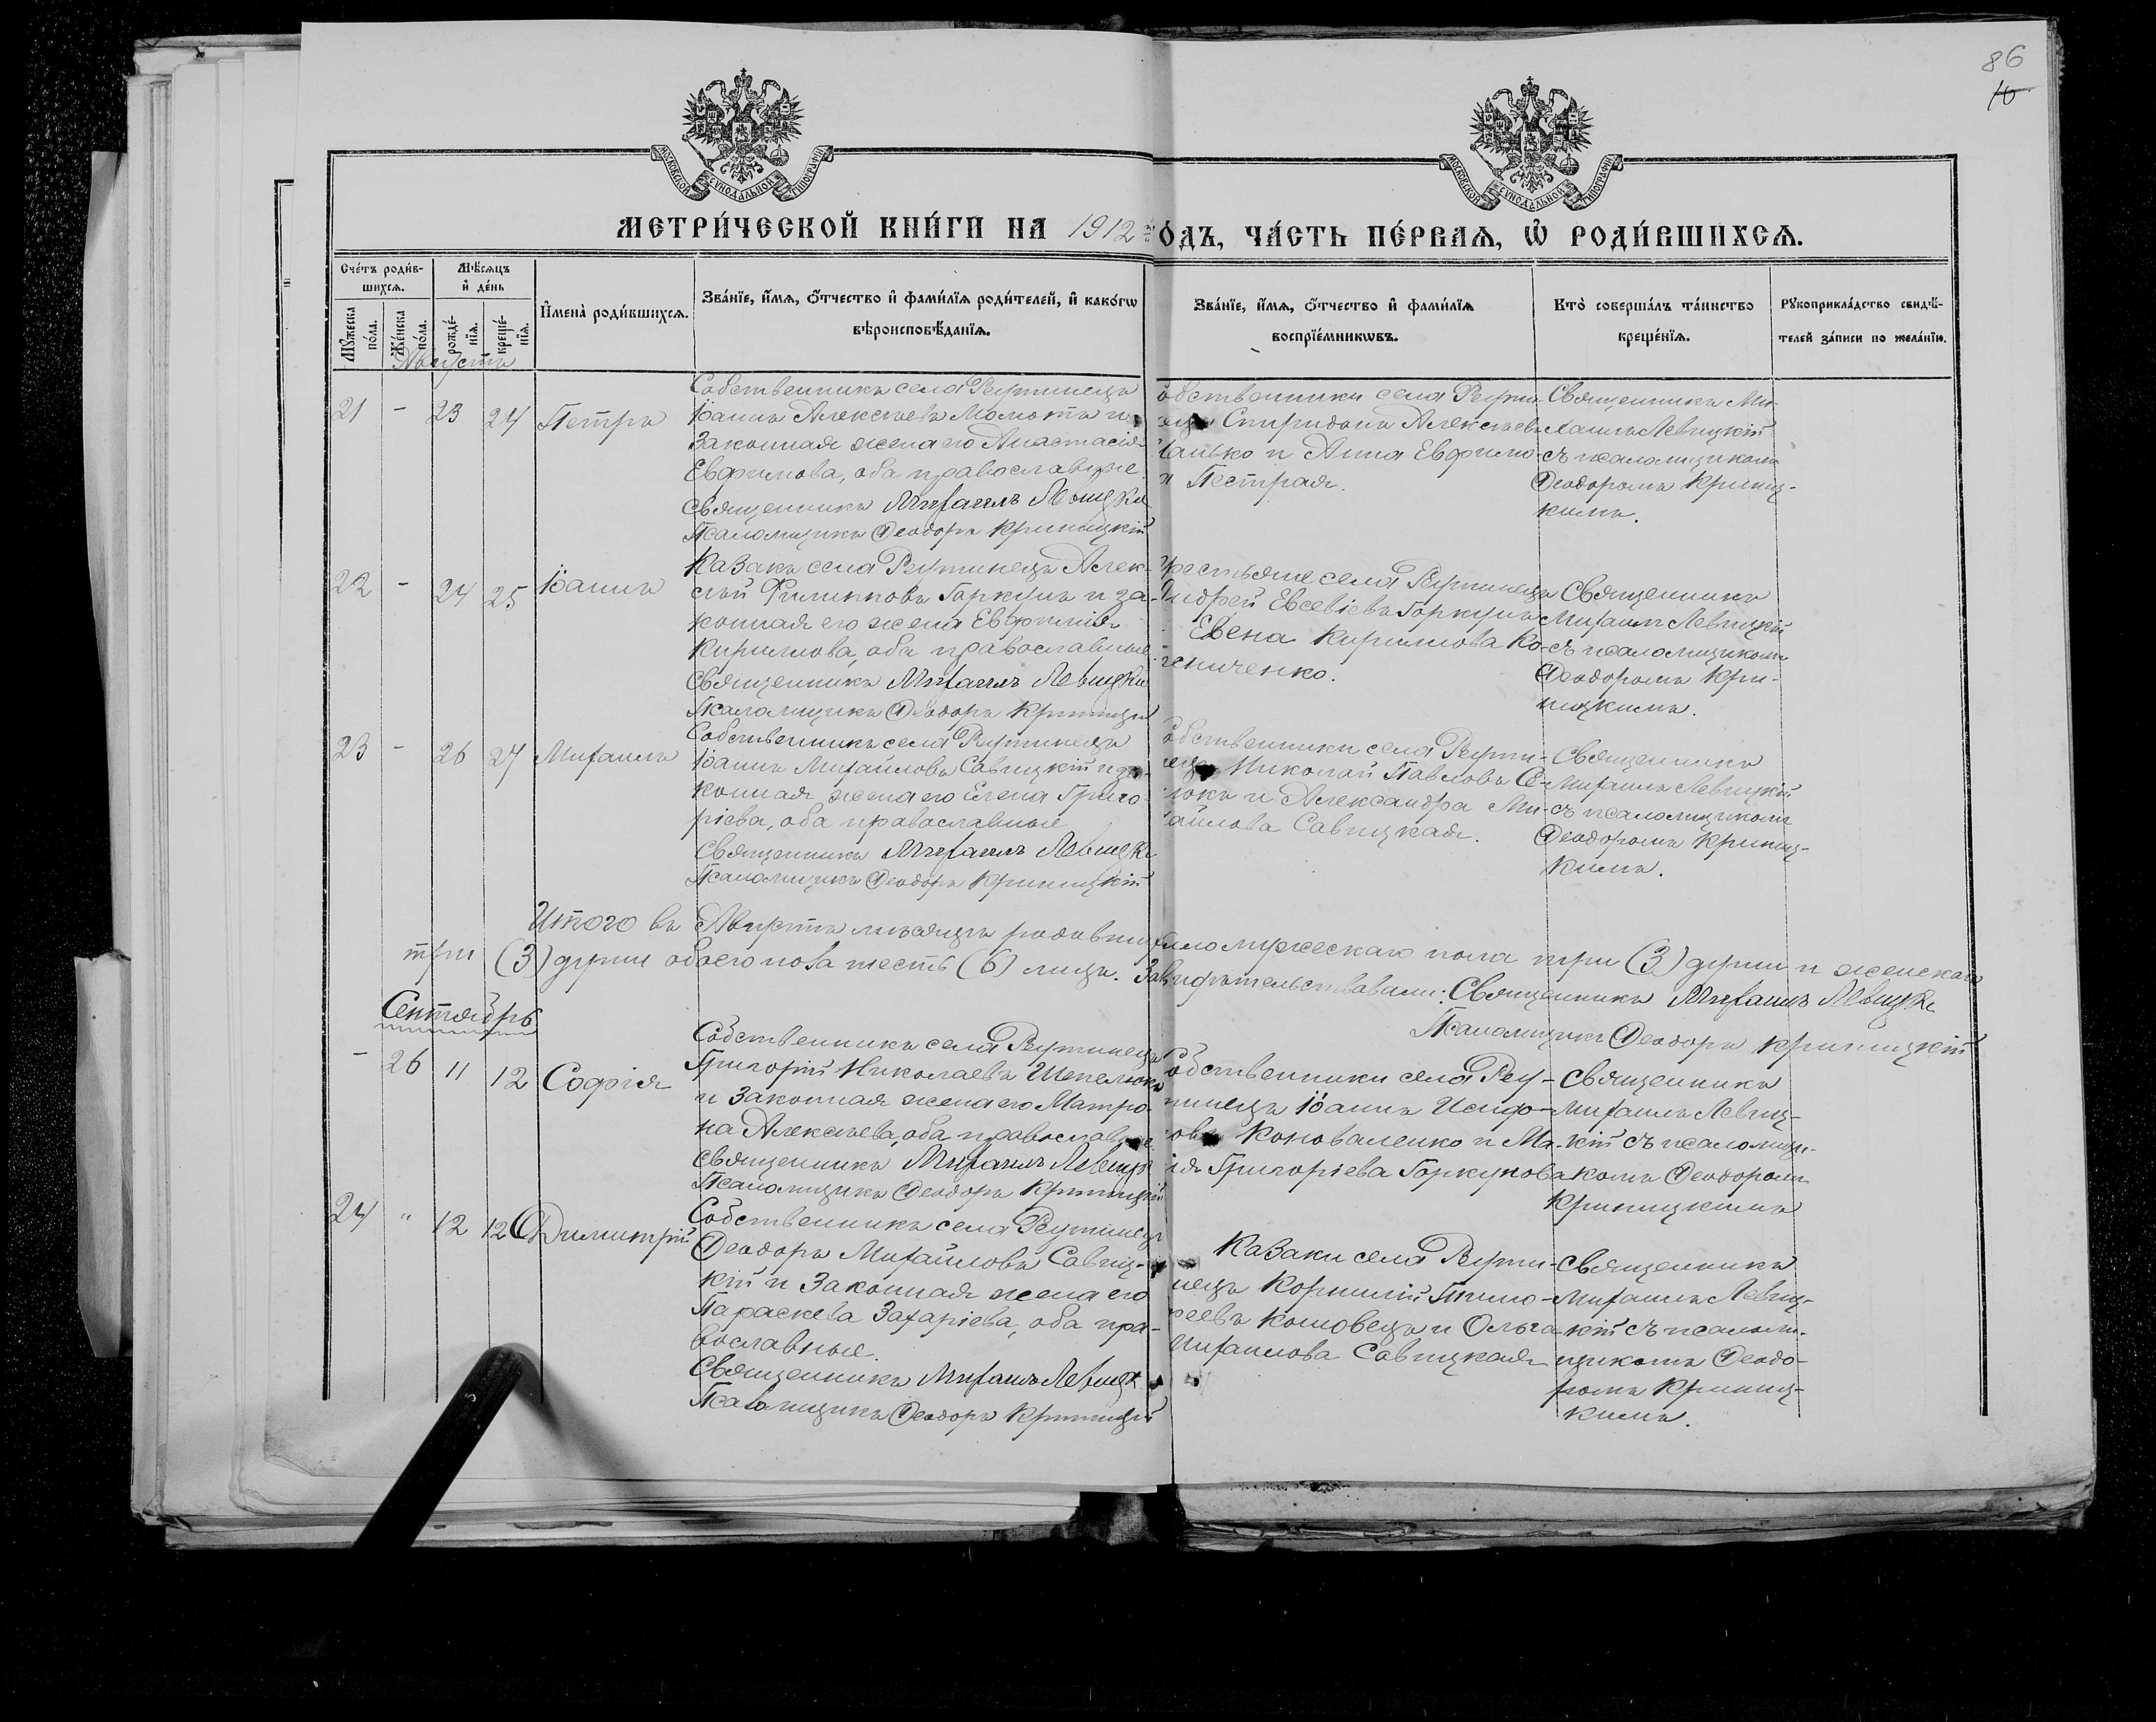 86
10
МОСКОВСКОЙ СУНОДАЛЬНОЙ ТИПОГРАФІИ
МОСКОВСКОЙ СУНОДАЛЬНОЙ ТИПОГРАФІИ
МЕТРИ́ЧЕСКОЙ КНИ́ГИ НА 1912 ГО́ДЪ, ЧА́СТЬ ПЕ́РВАЯ, Ѡ РОДИ́ВШИХСЯ.
Сче́тъ роди́в-
шихся.
Мѣ́сяцъ
и де́нь
Мꙋ́жеска по́ла.
Же́нска по́ла.
рожде́-
нія.
креще́-
нія.
Имена̀ роди́вшихся.
Зва́нїе, и́мя, ѻ́тчество и фами́лїя роди́телей, и како́гѡ
вѣроисповѣ́данїя.
Зва́нїе, и́мя, ѻ́тчество и фами́лїя
воспрїе́мникѡвъ.
Кто̀ соверша́лъ та́инство
креще́нїя.
Рꙋкоприкла́дство свидѣ́-
телей за́писи по жела́нїю.
Августъ
21 - 23 24 Петръ
Собственникъ села Реутинецъ
Іоаннъ Алексѣевъ Молота и
законная жена его Анастасія
Евфимова, оба православные
Священникъ Михаилъ Левицкі
Псаломщикъ Ѳеодоръ Криницкій
обственники села Реути-
нецъ Спиридонъ Алексѣевъ
и Анна Евфимо-
Пестрая.
Священникъ Ми-
хаилъ Левицкій
съ псаломщикомъ
Ѳеодоромъ Криниц-
кимъ.
22 - 24 25 Іоаннъ
Казакъ села Реутинецъ Алек-
сѣй Филипповъ Горкунъ и за-
конная его жена Евфимія
Кириллова, оба православные
Священникъ Михаилъ Левицкі
Псаломщикъ Ѳеодоръ Криницкій
рестьяне села Реутинецъ
Андрей Евсевіевъ Горкунъ
Евена Кириллова Ко-
ченко.
Священникъ
Михаилъ Левицкій
съ псаломщикомъ
Ѳеодоромъ Кри-
ницкимъ.
23 - 26 27 Михаилъ
Собственникъ села Реутинецъ
Іоаннъ Михайловъ Савицкій и за-
конная жена его Елена Григо-
ріева, оба православные
Священникъ Михаилъ Левицкі
Псаломщикъ Ѳеодоръ Криницкій
обственники села Реути-
нецъ Николай Павловъ
и Александра Ми-
айлова Савицкая.
Священникъ
Михаилъ Левицкій
съ псаломщикомъ
Ѳеодоромъ Криниц-
кимъ.
Итого въ Августѣ мѣсяцѣ родившихся мужескаго пола три (3) души и женскаго
три (3) души обоего пола шесть (6) лицъ. Завидѣтельствовали: Священникъ Михаилъ Левицкі
Псаломщикъ Ѳеодоръ Криницкій
Сентябрь
- 26 11 12 Софія
Собственникъ села Реутинецъ
Григорій Николаевъ Шепелюкъ
и законная жена его Матро-
на Алексѣева, оба православные
Священникъ Михаилъ Левицк
Псаломщикъ Ѳеодоръ Криницкій
обственники села Реу-
тинецъ Іоаннъ Исидо-
овъ Коноваленко и Ма-
ія Григоріева Горкунова
Священникъ
Михаилъ Левиц-
кій съ псаломщи-
комъ Ѳеодоромъ
Криницкимъ
24 " 12 12 Димитрій
Собственникъ села Реутинец
Ѳеодоръ Михайловъ Савиц-
кій и законная жена его
Параскева Захаріева, оба пра-
вославные.
Священникъ Михаилъ Левицк
Псаломщикъ Ѳеодоръ Криницкій
Казаки села Реути-
нецъ Корнилій Тимо-
ѳеевъ Кошовецъ и Ольга
Михаилова Савицкая
Священникъ
Михаилъ Левиц-
кій съ псалом-
щикомъ Ѳеодо-
ромъ Криниц-
кимъ.